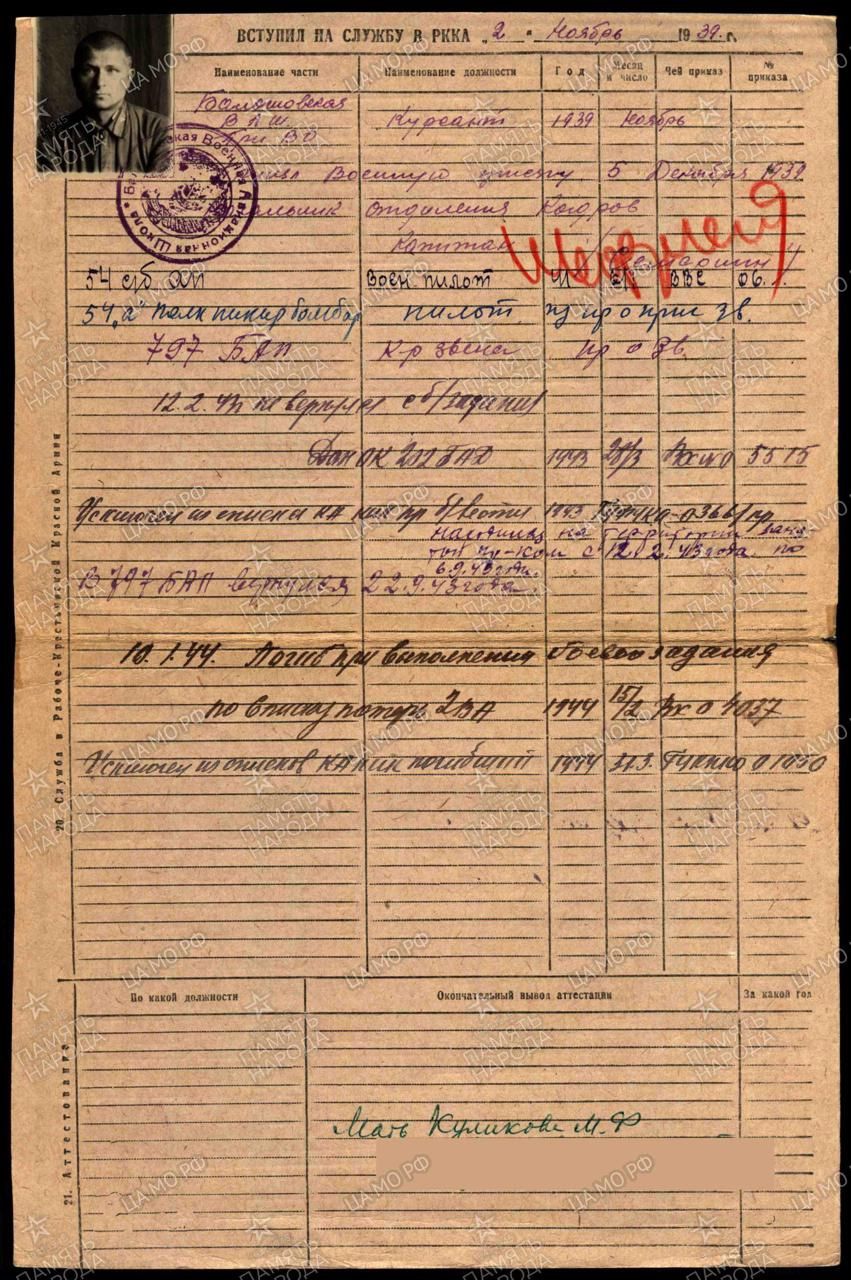 ВСТУПИЛ НА СЛУЖБУ В РККА „2" Ноябрь 1939 г.
Наименование части Наименование должности Год Месяц и число Чей приказ № приказа
Балашовская
ВАШ Курсант 1939 Ноябрь
При ВО
Военную присягу 5 Декабря 1939
Начальник отделения Кадров
Капитан
54 сб АП Воен. пилот ВВС 06
54 „а" полк пикир бомбар пилот пр о прис зв.
797 БАП К-р звена пр о зв.
12.2.43 не вернулся с б/задания
Дон ОК 202 БАД 1943 28/3 Вх № 0 5515
Исключен из списка КА как пр б/вести 1943 ГУФУКА-0366/пр
находился на территории заня-
той пр-ком с 12.2.43 года по
6.9.43 года.
В 797 БАП вернулся 22.9.43 года.
10.1.44. Погиб при выполнении боевого задания
по списку потерь 2ВА 1944 15/2 Вх 0 4037
Исключен из списков КА как погибший 1944 31.3. ГУКНКО 01050
20. Служба в Рабоче-Крестьянской Красной Армии
По какой должности Окончательный вывод аттестации За какой год
21. Аттестование
Мать Куликова М.Ф
ПАМЯТЬ НАРОДА
ЦАМО.РФ